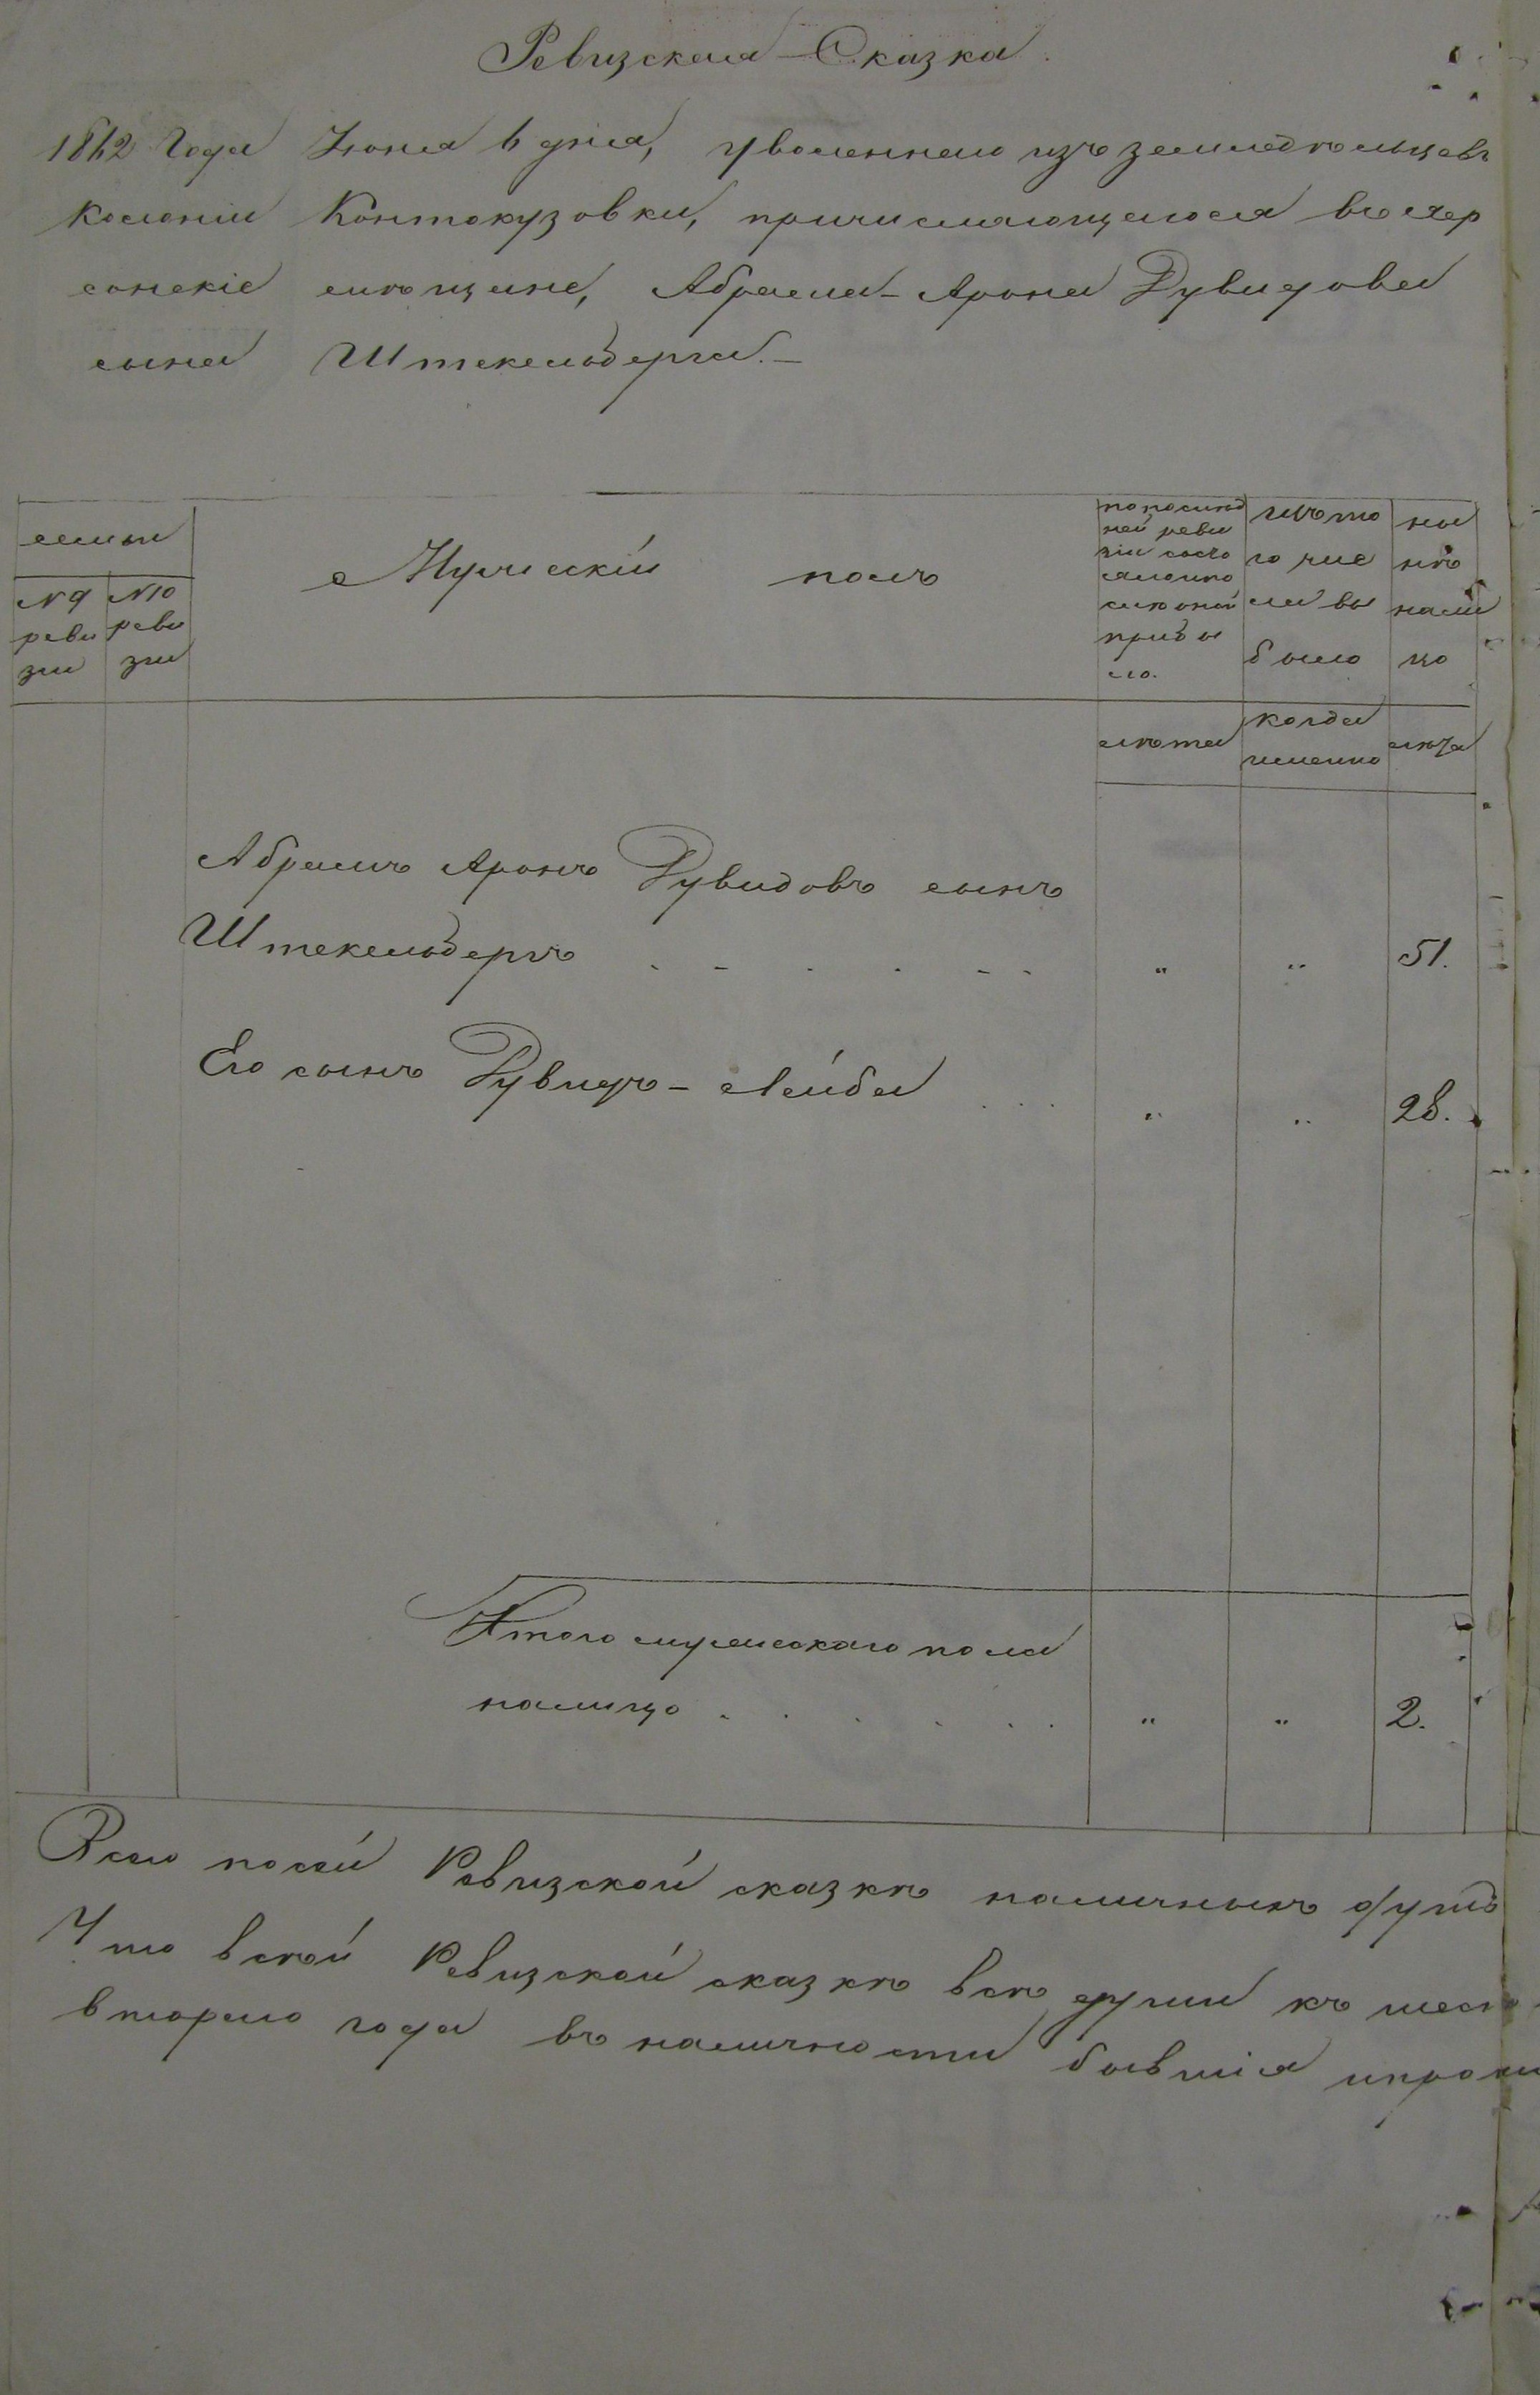 Ревизская Сказка
1862 Года Іюня 6 дня, уволеннаго изъ земледѣльцевъ
колоніи Контокузовки, причисляющагося въ Хер
сонскіе мѣщане, Абрама-Арона Дувидова
сына Штекельберга.-
семьи
№ 9 ревизіи
№ 10 ревизіи
Мужескій полъ
по послѣд
ней реви
зіи состо
яло и по
слѣ оной
прибы
ло.
изъ то
го чис
ла вы
было
ны
нѣ
нали
цо
лѣта
когда
именно
лѣта
Абрамъ Аронъ Дувидовъ сынъ
Штекельбергъ . - . . - . „ „ 51.
Его сынъ Дувидъ-Лейба . . . „ „ 28.
Итого мужескаго пола
налицо . . . . . . „ „ 2.
Всего по сей Ревизской сказкѣ наличныхъ душъ
Что в сей Ревизской сказкѣ всѣ души къ шест
втораго года въ наличности бывшія